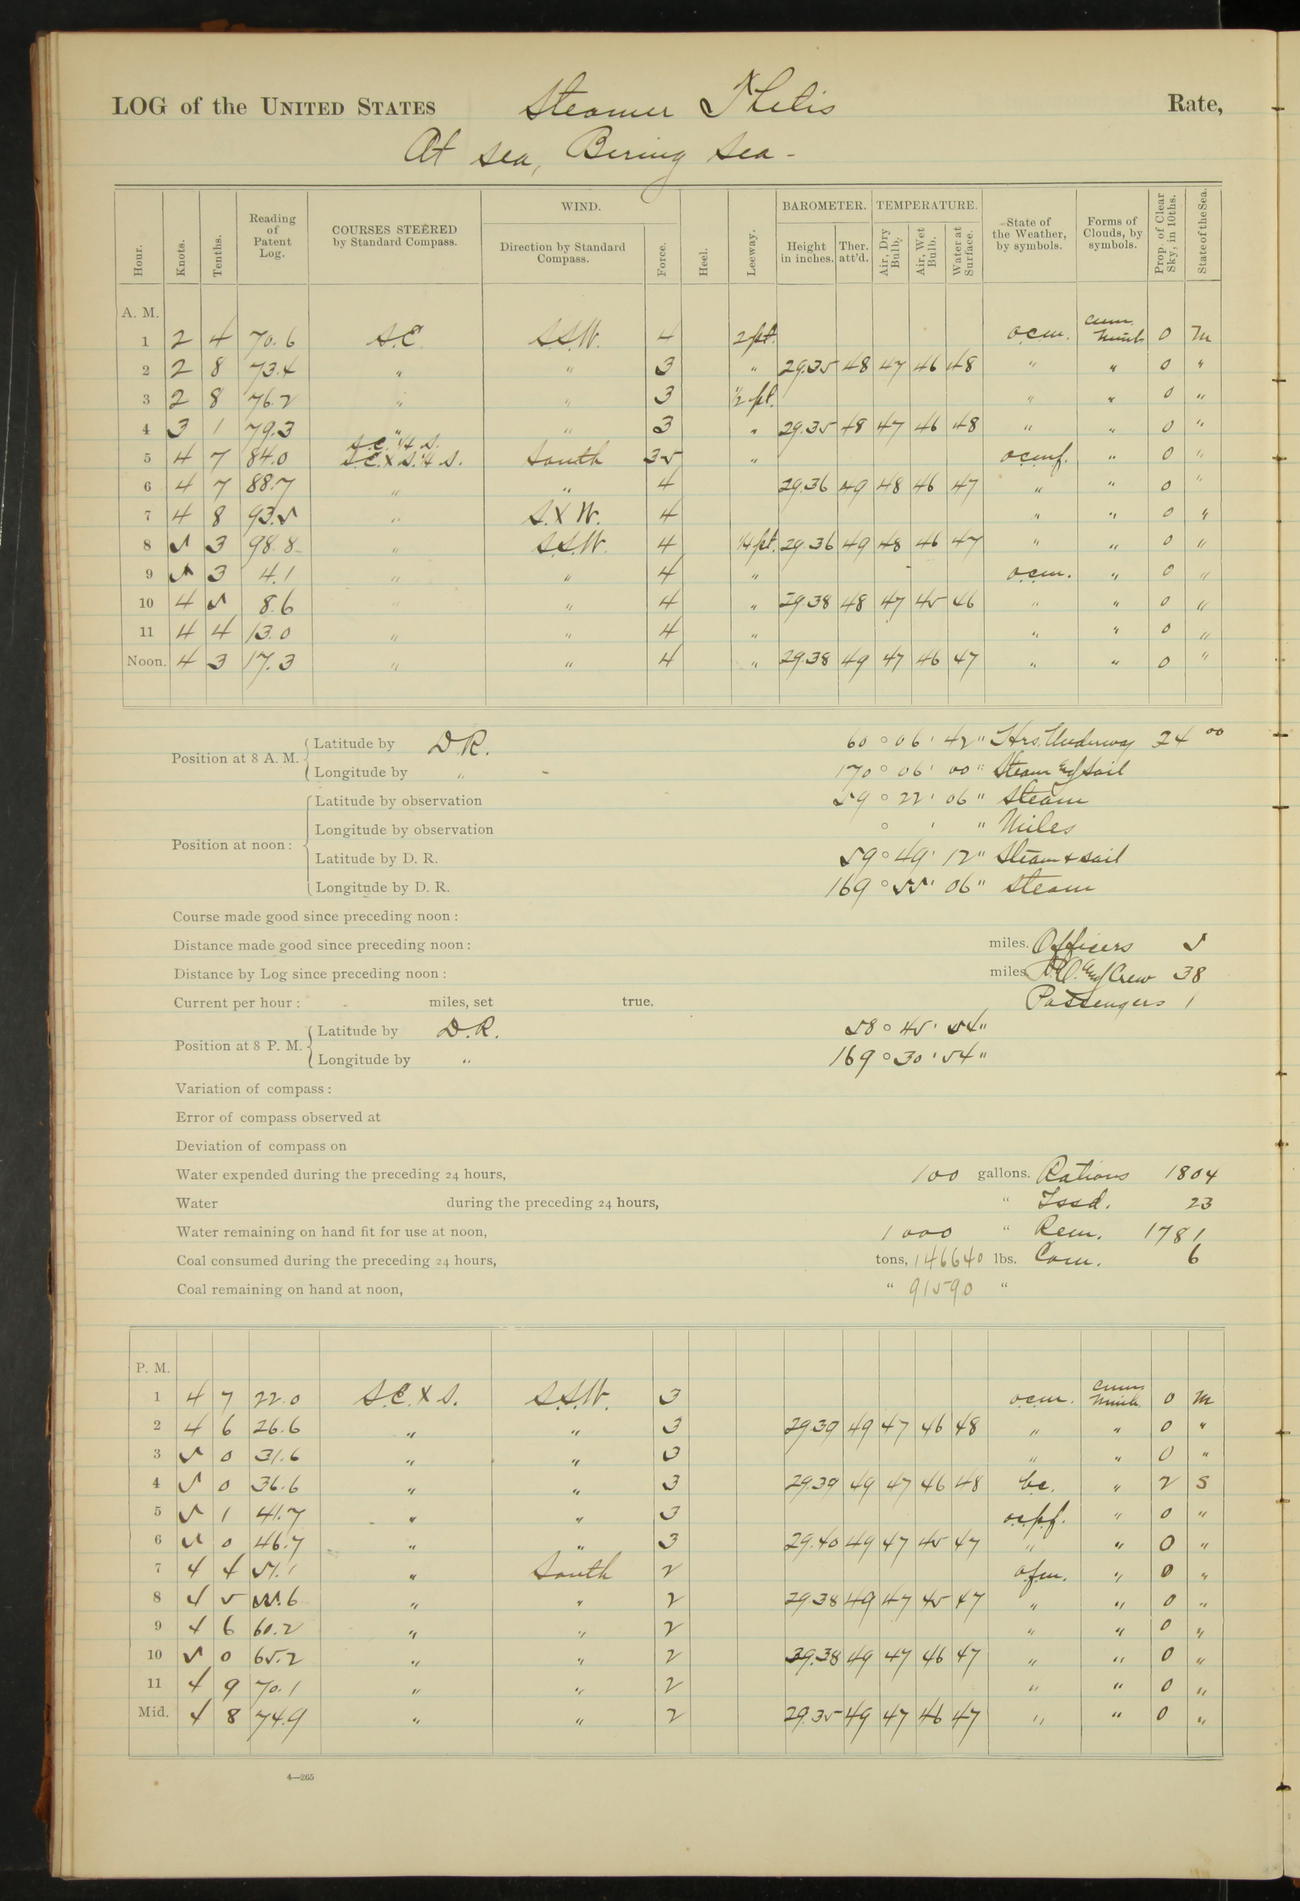 LOG of the UNITED STATES Steamer Thetis Rate,
At sea, Bering Sea -
Hour. Knots. Tenths. Reading of Patent Log. COURSES STEERED by Standard Compass. WIND. Direction by Standard Compass. Force. Heel. Leeway. BAROMETER. Height in inches. Ther. att'd. TEMPERATURE. Air, Dry Bulb. Air, Wet Bulb. Water at Surface. State of the Weather, by symbols. Forms of Clouds, by symbols. Prop. of Clear Sky, in 10ths. State of the Sea.
A. M.
1 2 4 70.6 S.E. S.S.W. 4 2 pt. o.c.m. cum. nimb 0 M
2 2 8 73.4 " " 3 " 29.35 48 47 46 48 " " 0 "
3 2 8 76.2 " " 3 1/2 pt. " " 0 "
4 3 1 79.3 " " 3 " 29.35 48 47 46 48 " " 0 "
S.E. 1/4 S.
5 4 7 84.0 S.E.XS.1/4 S. South 35 " o.c.m.f. " 0 "
6 4 7 88.7 " " 4 29.36 49 48 46 47 " " 0 "
7 4 8 93.5 " S.XW. 4 " " 0 "
8 5 3 98.8 " S.S.W. 4 1/4 pt. 29.36 49 48 46 47 " " 0 "
9 5 3 4.1 " " 4 " o.c.m. " 0 "
10 4 5 8.6 " " 4 " 29.38 48 47 45 46 " " 0 "
11 4 4 13.0 " " 4 " " " 0 "
Noon. 4 3 17.3 " " 4 " 29.38 49 47 46 47 " " 0 "
Position at 8 A. M. Latitude by D.R. 60 ° 06 ' 42 " Hrs. Underway 24 00
Longitude by " 170 ° 06 ' 00 " Steam and Sail
Position at noon: Latitude by observation 59 ° 22 ' 06 " Steam
Longitude by observation ° ' " Miles
Latitude by D. R. 59 ° 49 ' 12 " Steam & sail
Longitude by D. R. 169 ° 55 ' 06 " Steam
Course made good since preceding noon:
Distance made good since preceding noon: miles. Officers 5
Distance by Log since preceding noon: miles. P.O. and Crew 38
Current per hour: miles, set true. Passengers 1
Position at 8 P. M. Latitude by D.R. 58 ° 45 ' 54 "
Longitude by " 169 ° 30 ' 54 "
Variation of compass:
Error of compass observed at
Deviation of compass on
Water expended during the preceding 24 hours, 100 gallons. Rations 1804
Water during the preceding 24 hours, " Issd. 23
Water remaining on hand fit for use at noon, 1000 " Rem. 1781
Coal consumed during the preceding 24 hours, tons, 146640 lbs. Com. 6
Coal remaining on hand at noon, " 91590 "
P. M.
1 4 7 22.0 S.E. X S. S.S.W. 3 o.c.m. cum nimb 0 M
2 4 6 26.6 " " 3 29.39 49 47 46 48 " " 0 "
3 5 0 31.6 " " 3 " " 0 "
4 5 0 36.6 " " 3 29.39 49 47 46 48 b.c. " 2 S
5 5 1 41.7 " " 3 o.c.p.f. " 0 "
6 5 0 46.7 " " 3 29.40 49 47 45 47 " " 0 "
7 4 4 51.1 " South 2 o.f.m. " 0 "
8 4 5 55.6 " " 2 29.38 49 47 45 47 " " 0 "
9 4 6 60.2 " " 2 " " 0 "
10 5 0 65.2 " " 2 29.38 49 47 46 47 " " 0 "
11 4 9 70.1 " " 2 " " 0 "
Mid. 4 8 74.9 " " 2 29.35 49 47 46 47 " " 0 "
4—265